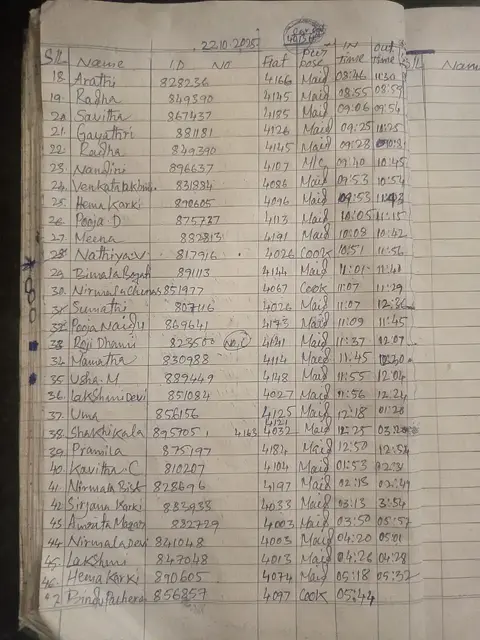 22.10.2025
S/L Name ID No Flat Pur pose IN time out time S/L Nam
18. Arathi 828236 4166 Maid 08:46 11:30
19. Radha 849390 4145 Maid 08:55 08:59
20. Savitha 867437 4185 Maid 09:06 09:54
21. Gayathri 881181 4126 Maid 09:25 10:25
22. Radha 849390 4145 Maid 09:28
23. Nandini 896637 4107 09:40 10:45
24. Venkatalakshmi 831884 4086 Maid 09:53 10:54
25. Hema Karki 890605 4096 Maid 09:53
26. Pooja D 875787 4113 Maid 10:05 11:15
27. Meena 882813 4191 Maid 10:08 10:42
28. Nathiya.V 817916 4026 Cook 10:51 11:56
29. Bimala 89113 4144 Maid 11:01 11:41
30. Nirmala 851977 4067 Cook 11:07 11:29
31. Sumathi 4026 Maid 11:07
32. Pooja Naidu 869641 4173 Maid 11:09 11:45
33. Roji Dhami 823500 4141 Maid 11:37 12:07
34. Mamatha 830988 4114 Maid 11:45
35 Usha.M 889449 4148 Maid 11:55 12:04
36. Lakshmi Devi 851084 4027 Maid 11:56 12:24
37. Uma 856156 4125 Maid 12:18 01:20
4121
38. Shashi Kala 895705 4163 4032 Maid 12:25
39. Pramila 875197 4184 Maid 12:50 12:54
40. Kavitha C 810207 4104 Maid 01:53 02:31
41. Nirmala Bist 828696 4197 Maid 02:18 02:49
42 Sirjana Karki 883938 4033 Maid 03:13 3:54
43 Amrata Magar 832729 4003 Maid 03:50 05:57
44 Nirmala Devi 841048 4003 Maid 04:20 05:01
45. Lakshmi 847048 4013 Maid 04:26 04:28
46. Hema Karki 890605 4074 Maid 05:18 05:32
Bindu 856857 4097 Cook 05:44